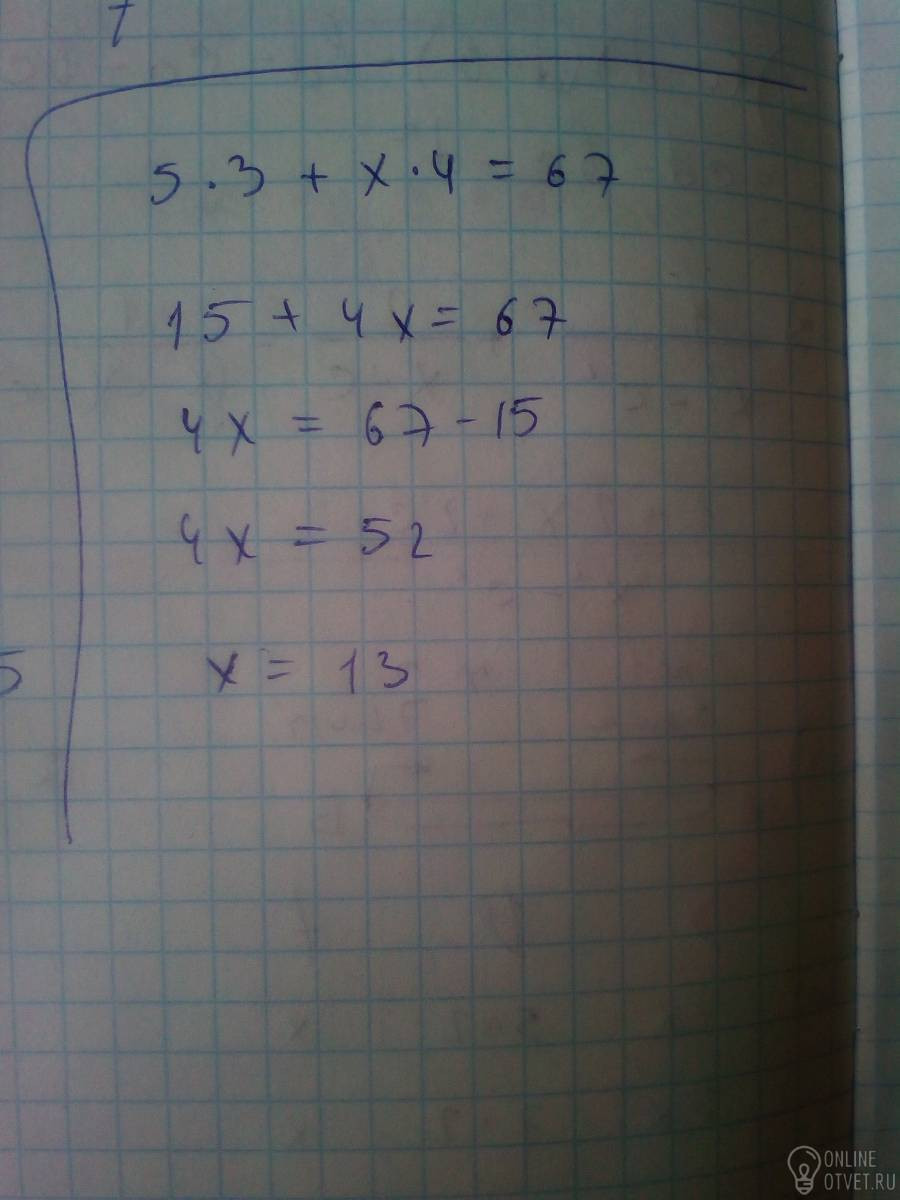 5 · 3 + x · 4 = 67
15 + 4x = 67
4x = 67 - 15
4x = 52
5
x = 13
ONLINE
OTVET.RU